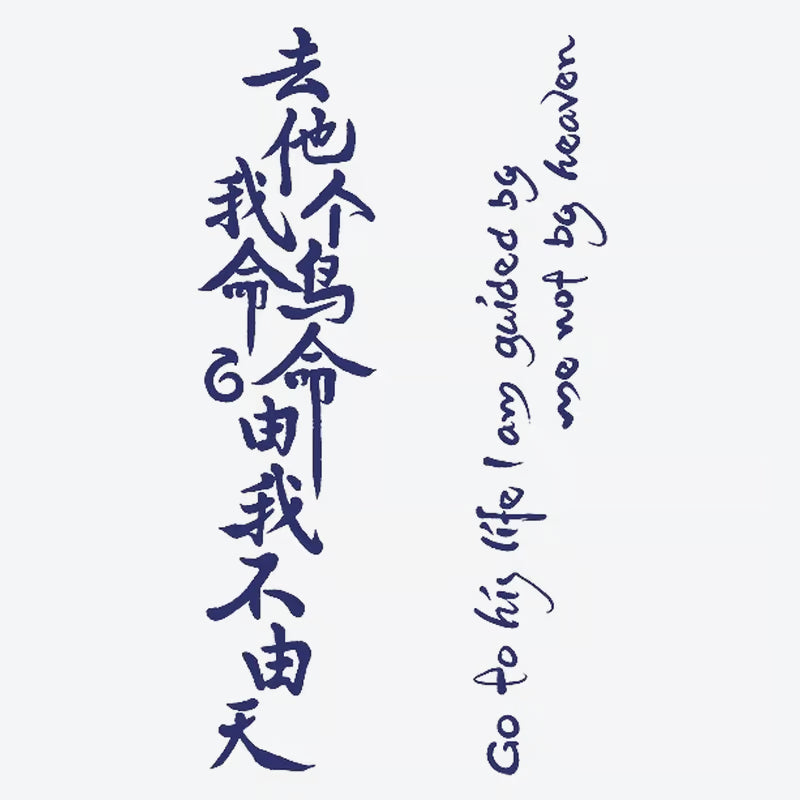 去他个鸟命
我命由我不由天
Go to his life I am guided by
me not by heaven